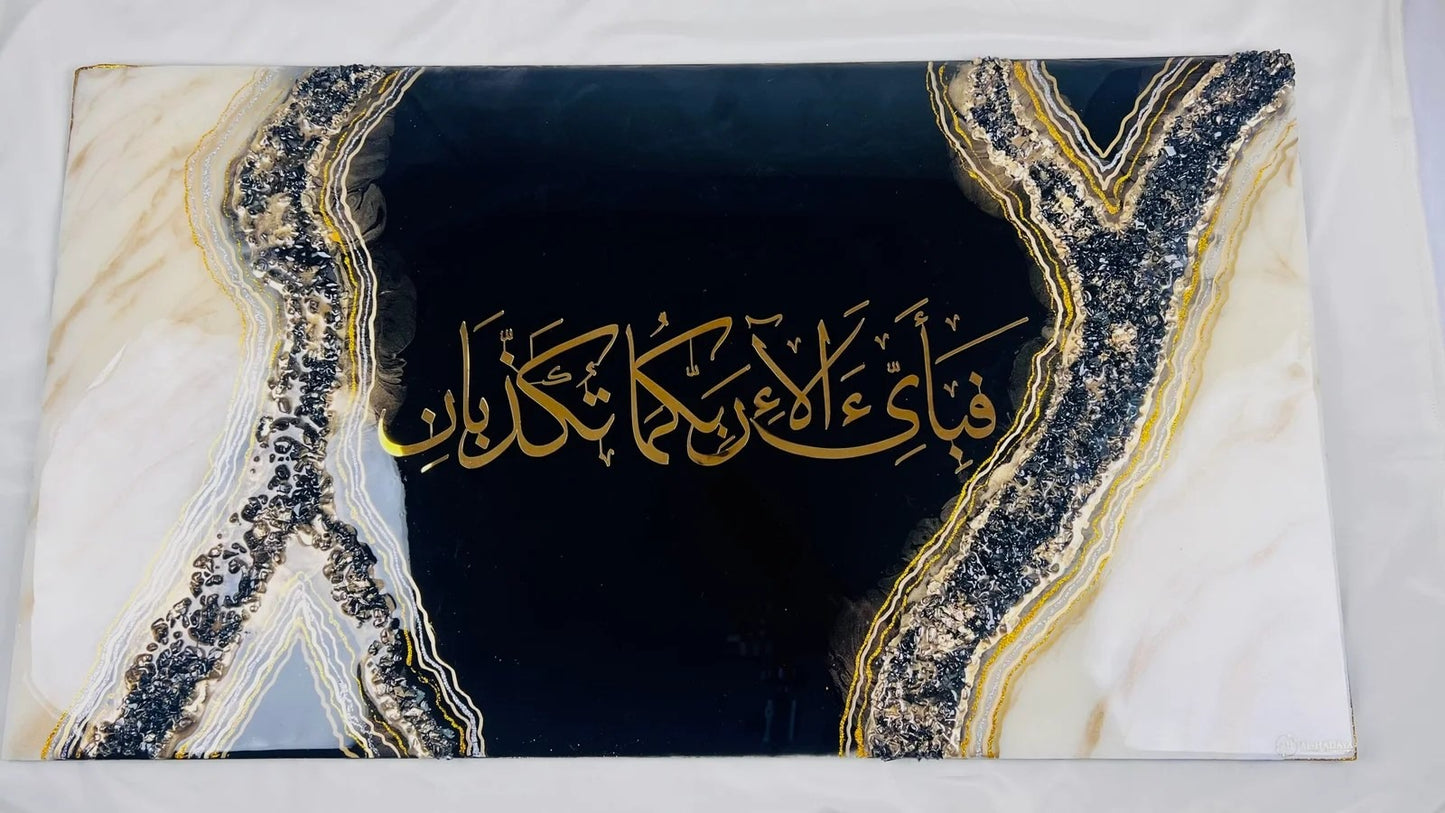 فَبِأَيِّ ءَالَآءِ رَبِّكُمَا تُكَذِّبَانِ